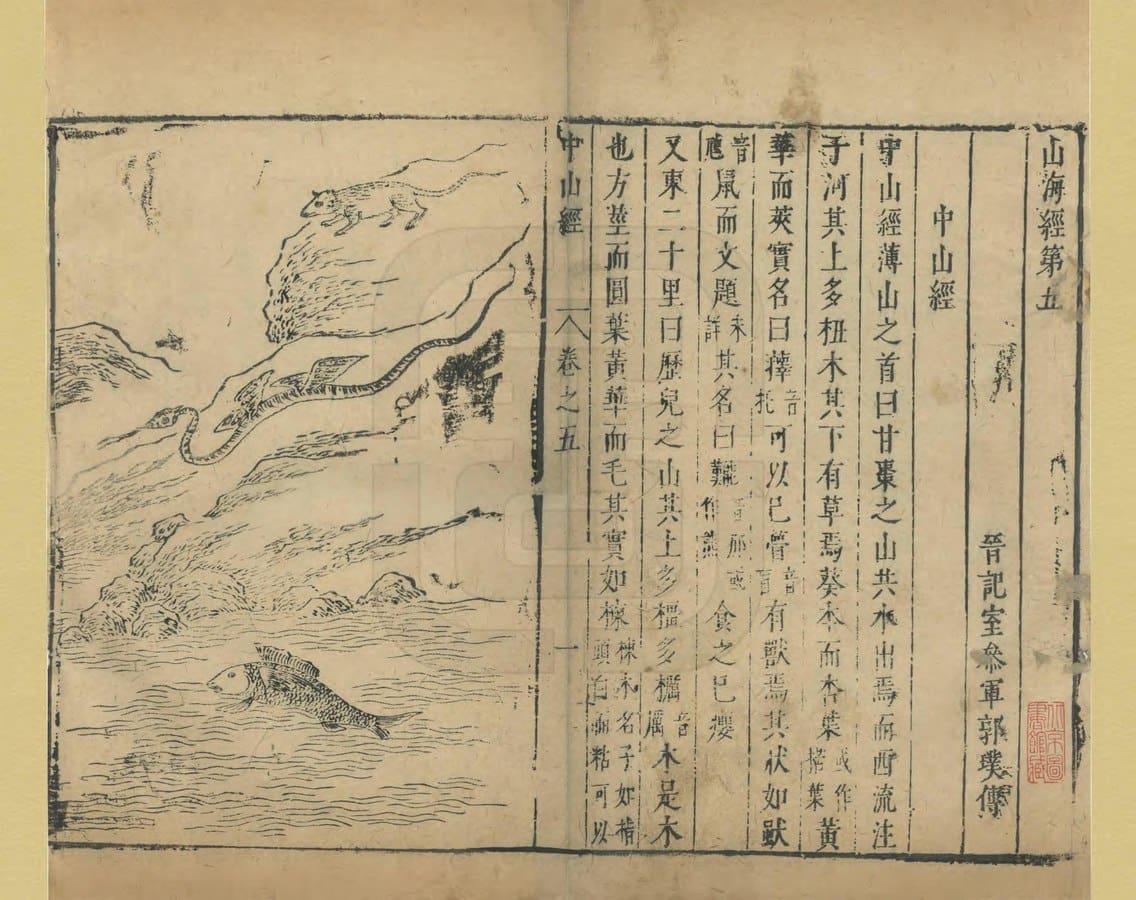 山海經第五
晉記室參軍郭璞傳
中山經
中山經薄山之首曰甘棗之山共水出焉而西流注
于河其上多杻木其下有草焉葵本而杏葉或作楛葉黃
華而莢實名曰籜音托可以已瞢音盲有獸焉其狀如㹠
音虺鼠而文題未詳其名曰 音那或作熊食之已癭
又東二十里曰歷兒之山其上多橿多櫔音厲木是木
也方莖而圓葉黃華而毛其實如楝楝木名子如指頭白而粘可以
中山經 卷之五 一